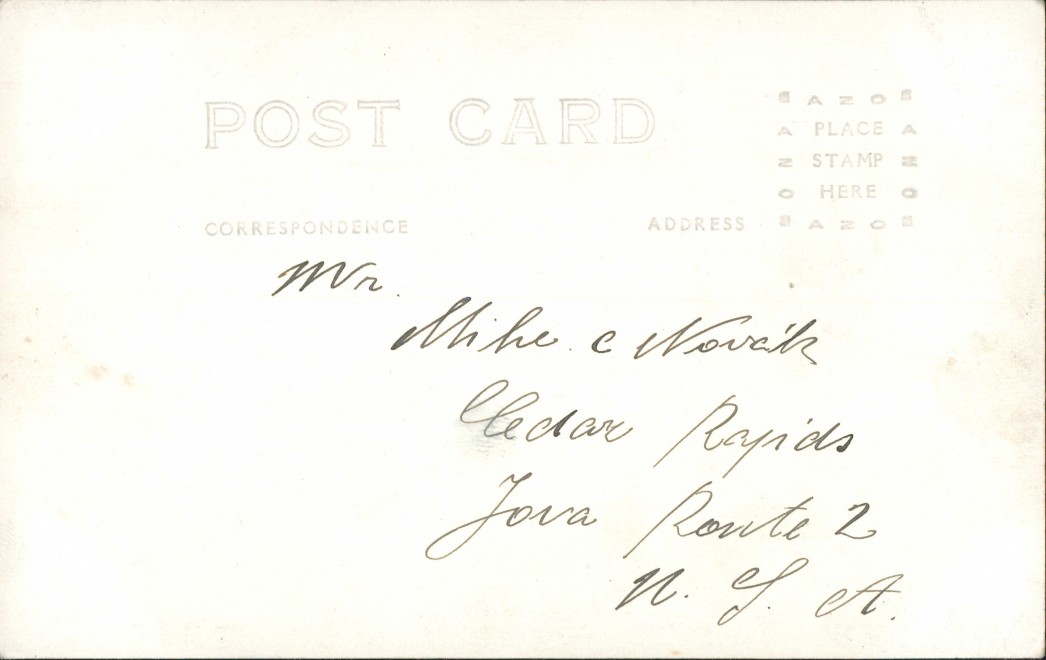 POST CARD
AZO
A PLACE A
Z STAMP Z
O HERE O
AZO
CORRESPONDENCE ADDRESS
Mr.
Mike c Novák
Cedar Rapids
Iova Route 2
U. S. A.